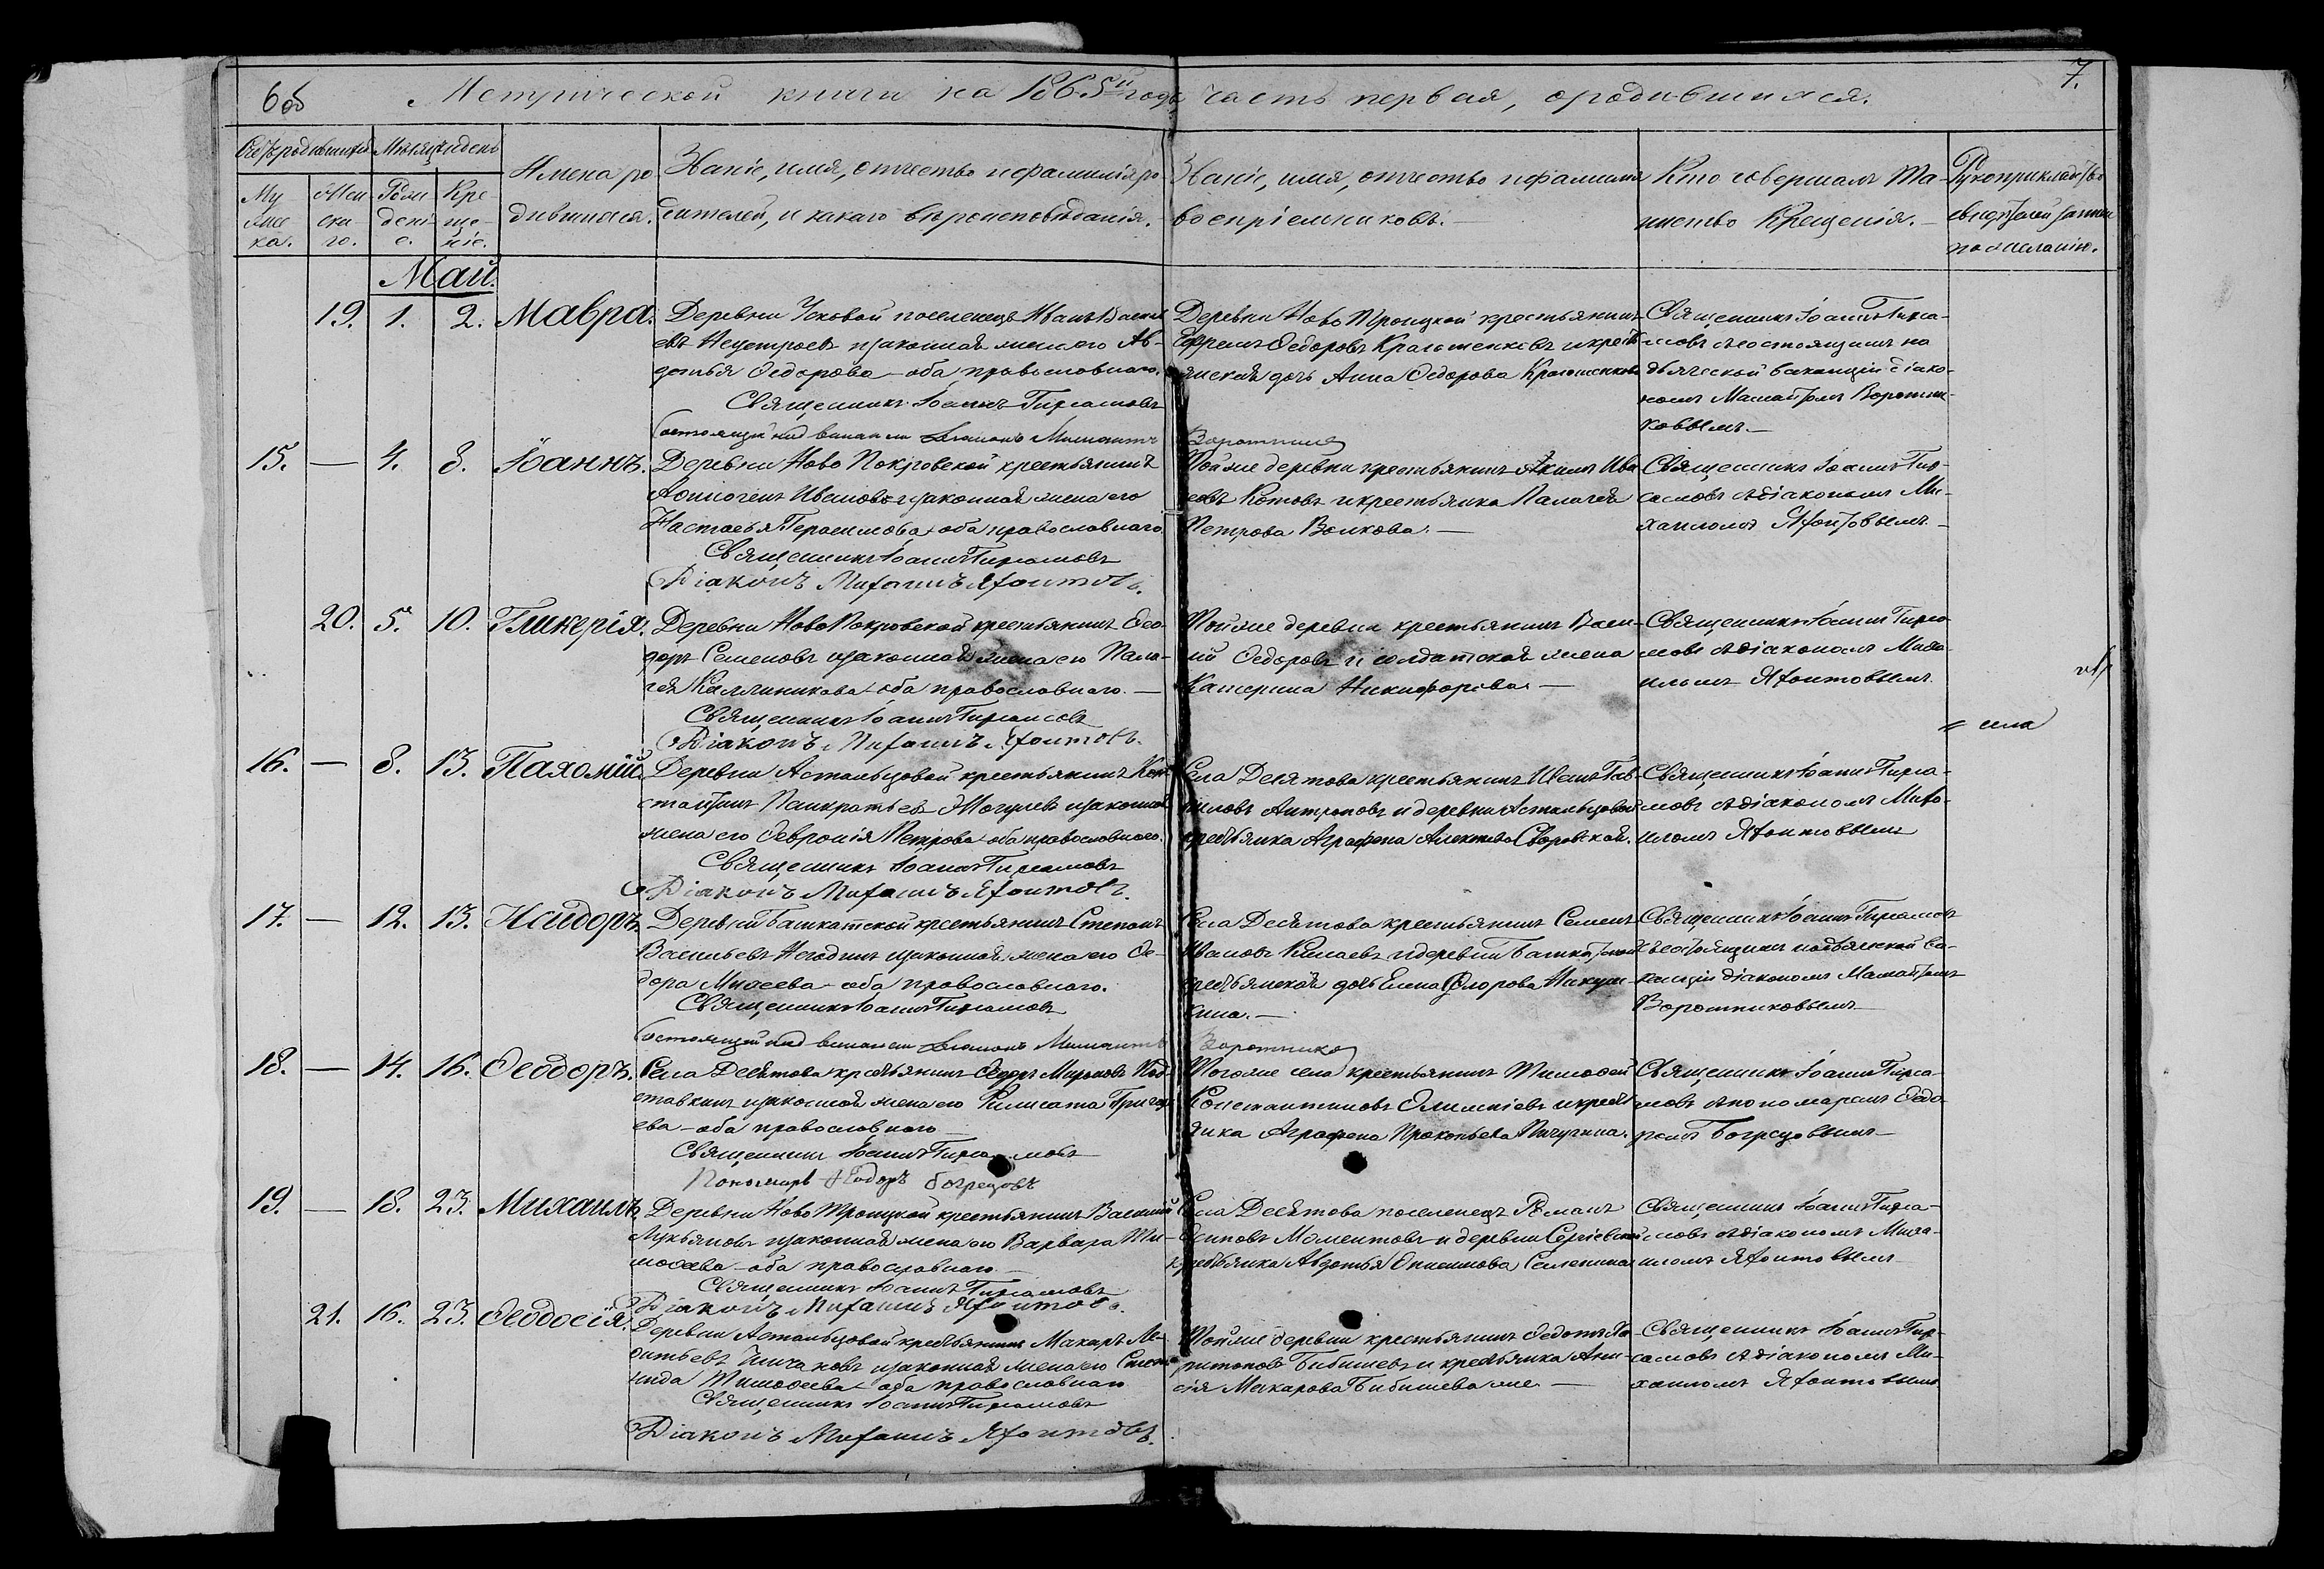 6об Метрической книги на 1865й годъ часть первая, о родившихся. 7.
Счетъ родившихся Мѣсяцъ и день
Имена ро
дившихся.
Званіе, имя, отчество и фамилія ро
дителей, и какаго вѣроисповѣданія.
Званіе, имя, отчество и фамилія
воспріемниковъ.
Кто совершалъ та-
инство Крещенія.
Рукоприкладство
свидѣтелей записи
по желанію.
Му
жес
ка.
Жен
ска
го.
Рож
дені
е.
Кре
ще
ніе.
Май.
19. 1. 2. Мавра.
Деревни Усковой поселенецъ Иванъ Васил
евъ и законная жена его Ав-
дотья Федорова – оба православнаго.
Священникъ Іоаннъ Гирсамовъ
Состоящій
Деревни Ново Троицкой крестьянинъ
Ефремъ Федоровъ и крестъ
янская дочь Анна Федорова
Священникъ Іоаннъ Гирса-
мовъ съ состоящимъ на
дьяческой вакансіи діако-
номъ Воротни-
ковымъ.
15. — 4. 8. Іоаннъ.
Деревни Ново Покровской крестьянинъ
Афиногенъ Ивановъ и законная жена его
Настасья Герасимова – оба православнаго.
Священникъ Іоаннъ Гирсамовъ
Діаконъ Михаилъ Яхонтовъ.
Той же деревни крестьянинъ Акимъ Ива
новъ Котовъ и крестьянка Палагея
Петрова Волкова. —
Священникъ Іоаннъ Гир-
самовъ съ діакономъ Ми-
хаиломъ Яхонтовымъ.
20. 5. 10. Гликерія.
Деревни Ново Покровской крестьянинъ Фео
доръ Семеновъ и законная жена его Пала-
гея Каллиникова – оба православнаго. —
Священникъ Іоаннъ Гирсамовъ
Діаконъ Михаилъ Яхонтовъ.
Той же деревни крестьянинъ Васи-
лій Федоровъ и солдатская жена
Катерина Никифорова. —
Священникъ Іоаннъ Гирса
мовъ съ діакономъ Миха-
иломъ Яхонтовымъ.
16. — 8. 13. Пахомій.
Деревни Астальцовой крестьянинъ Кон
стантинъ Панкратьевъ и законная
жена его Февронія Петрова – оба православнаго.
Священникъ Іоаннъ Гирсамовъ
Діаконъ Михаилъ Яхонтовъ.
Села Десятова крестьянинъ Иванъ Гав-
риловъ Антроповъ и деревни Астальцовой
крестьянка Аграфена
Священникъ Іоаннъ Гирса-
мовъ съ діакономъ Миха-
иломъ Яхонтовымъ
17. — 12. 13. Исидоръ.
Деревни Башкатской крестьянинъ Степанъ
Васильевъ и законная жена его Фе-
дора Мосеева – оба православнаго.
Священникъ Іоаннъ Гирсамовъ
Состоящій
Села Десятова крестьянинъ Семенъ
Ивановъ и деревни Башкатской
крестьянская дочь Елена Флорова
Священникъ Іоаннъ Гирсамовъ
съ состоящимъ на дьяческой ва-
кансіи діакономъ
Воротниковымъ
18. — 14. 16. Феодоръ.
Села Десятова крестьянинъ Федоръ Мироновъ Под-
ставкинъ и законная жена его Григорь
ева – оба православнаго
Священникъ Іоаннъ Гирсамовъ
Пономарь Федоръ Богрецовъ
Того же села крестьянинъ Тимофей
Константиновъ и крестъ
янка Аграфена Прокопьева Пичугина.
Священникъ Іоаннъ Гирса-
мовъ съ пономаремъ Федо-
ромъ Богрецовымъ —
19. — 18. 23. Михаилъ.
Деревни Ново Троицкой крестьянинъ Василій
Лукьяновъ и законная жена его Варвара Ти-
мофеева – оба православнаго
Священникъ Іоаннъ Гирсамовъ
Діаконъ Михаилъ Яхонтовъ.
Села Десятова поселенецъ Романъ
Осиповъ Моментовъ и деревни Сергіевской
крестьянка Авдотья Онисимова
Священникъ Іоаннъ Гирса-
мовъ съ діакономъ Миха-
иломъ Яхонтовымъ
21. 16. 23. Феодосія.
Деревни Астальцовой крестьянинъ Макаръ
и законная жена его Степа
нида Тимофеева – оба православнаго
Священникъ Іоаннъ Гирсамовъ
Діаконъ Михаилъ Яхонтовъ.
Той же деревни крестьянинъ Федотъ Ха-
ритоновъ Бибишевъ и крестьянка Ани-
сія Макарова Бибишева же. —
Священникъ Іоаннъ Гир-
самовъ съ діакономъ Ми-
хаиломъ Яхонтовымъ